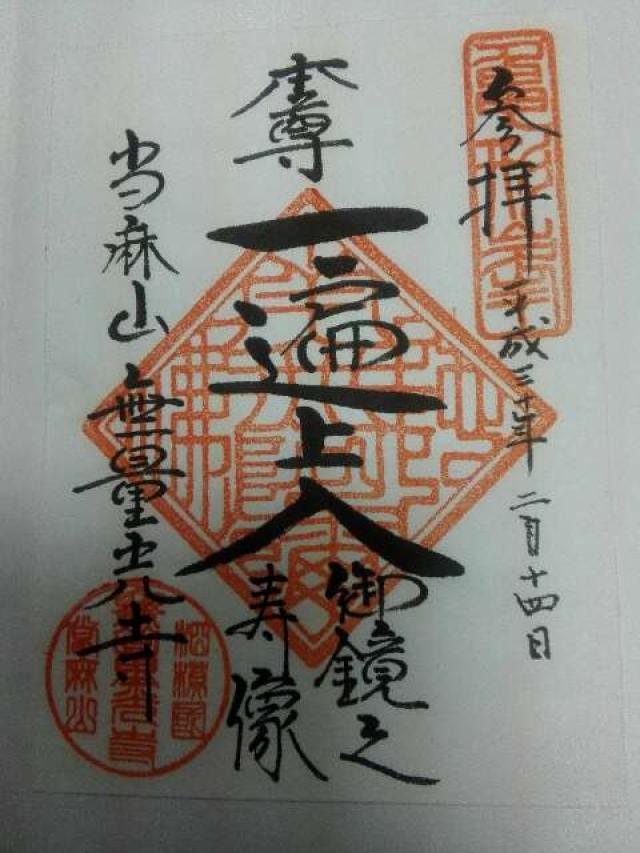 参拝 平成三十年 二月十四日
本尊
一遍上人
御鏡之
寿像
当麻山 無量光寺
相模国
無量光寺
當麻山